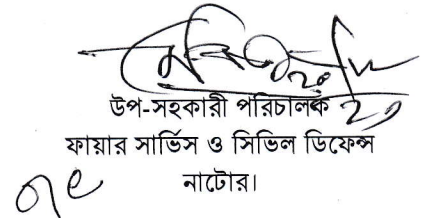 উপ-সহকারী পরিচালক
ফায়ার সার্ভিস ও সিভিল ডিফেন্স
নাটোর।